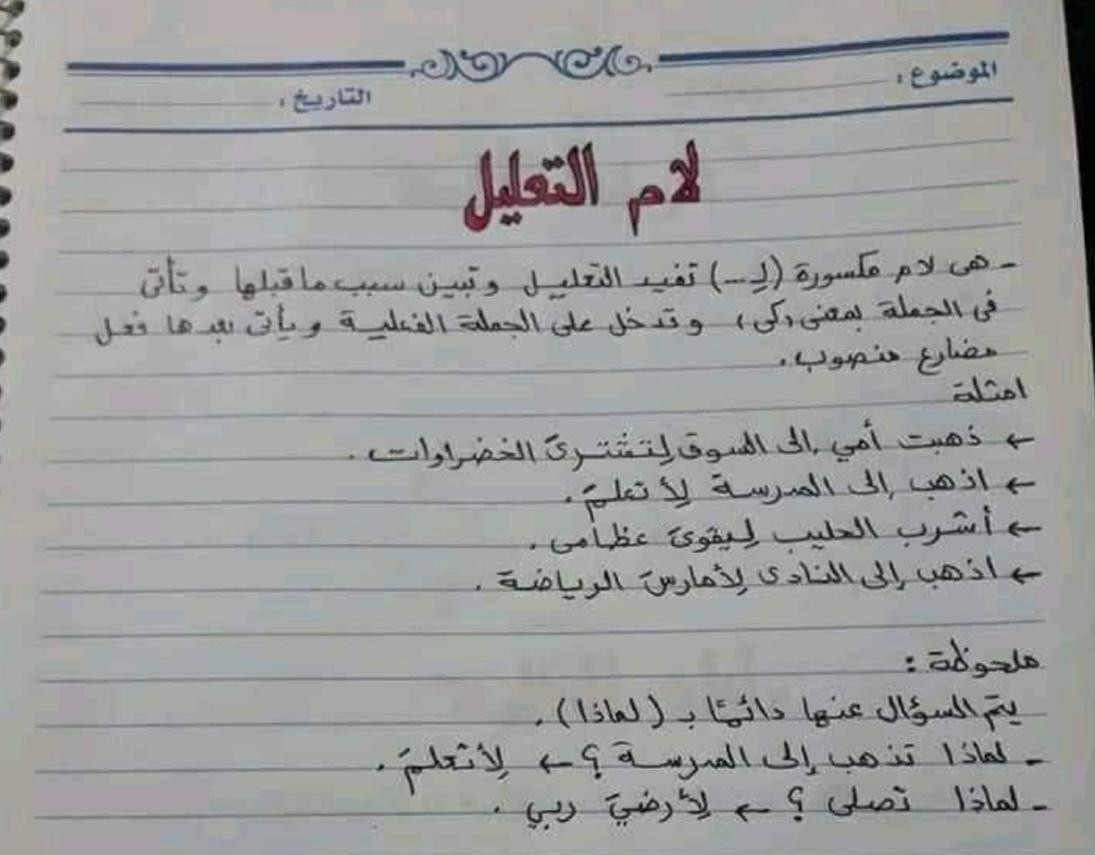 الموضوع :
التاريخ :
لام التعليل
- هى لام مكسورة (لِـ...) تفيد التعليل وتبين سبب ما قبلها وتأتى
فى الجملة بمعنى (كى) وتدخل على الجملة الفعلية ويأتى بعدها فعل
مضارع منصوب.
امثلة
← ذهبت أمي إلى السوق لِتشترىَ الخضراوات.
← اذهب إلى المدرسة لِأتعلمَ.
← أشرب الحليب لِيقوىَ عظامى.
← اذهب إلى النادى لِأمارسَ الرياضة.
ملحوظة :
يتم السؤال عنها دائمًا بـ (لماذا).
- لماذا تذهب إلى المدرسة ؟ ← لِأتعلمَ.
- لماذا تصلى ؟ ← لِأرضيَ ربي.